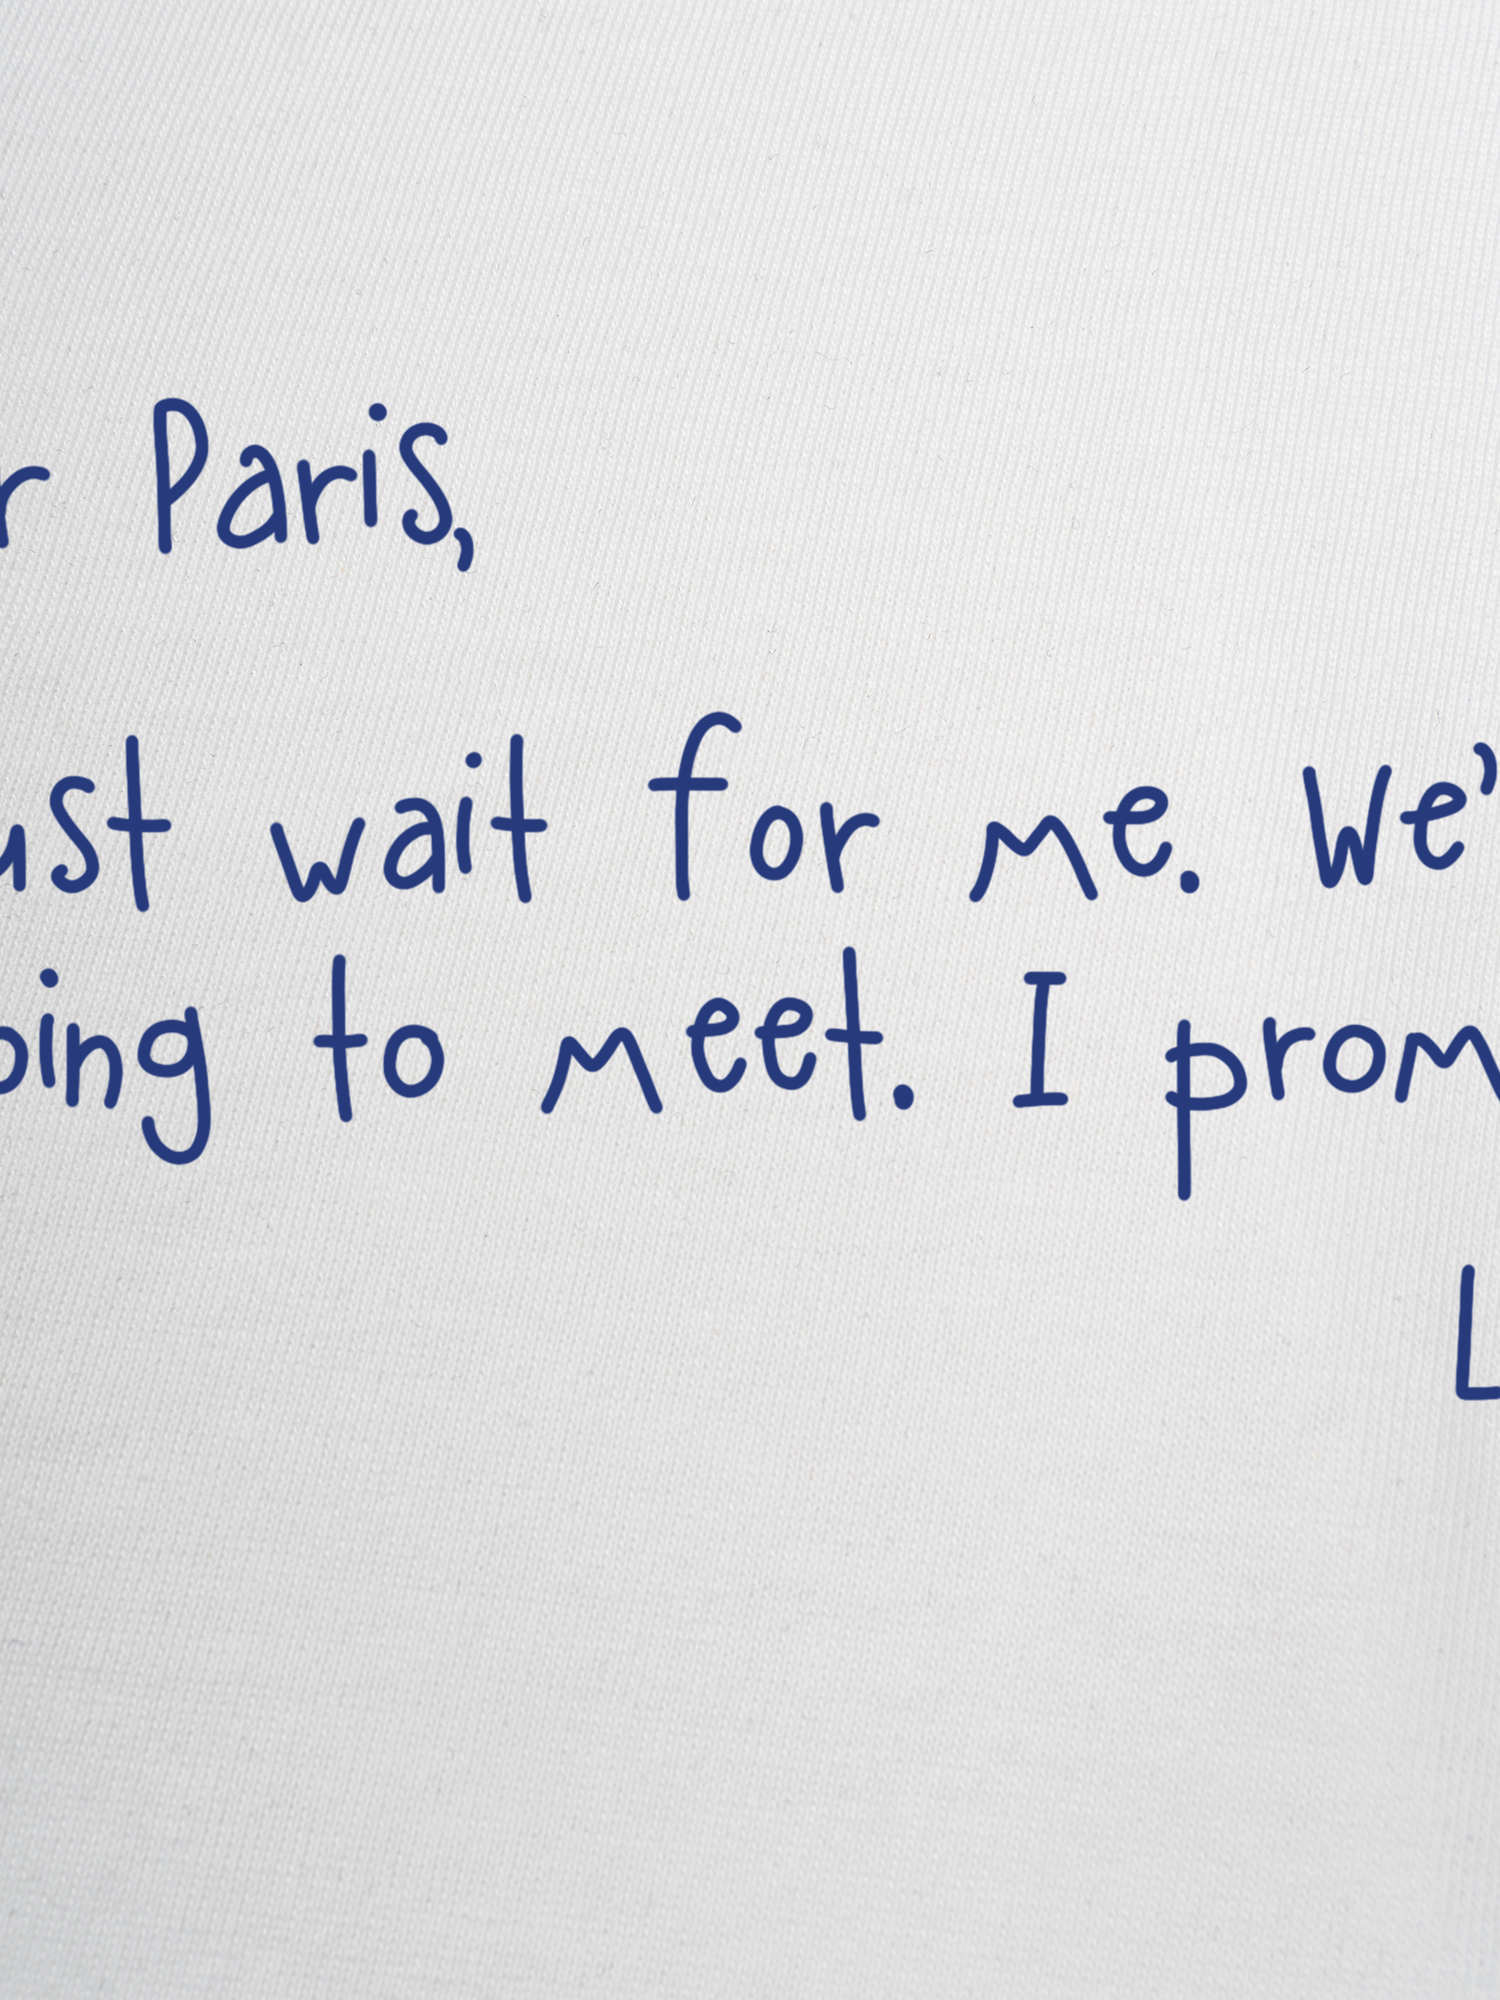 r Paris,
ust wait for me. We'
oing to meet. I prom
L